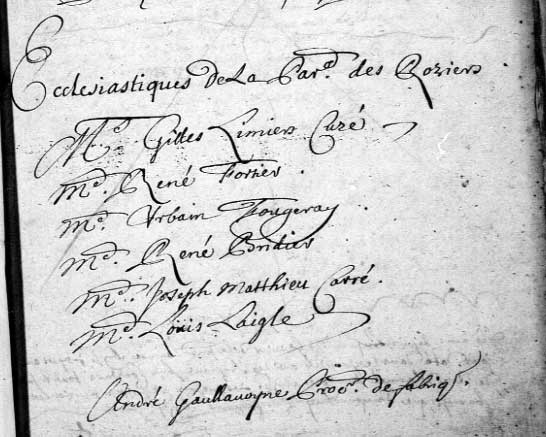 Ecclesiastiques de La Par.e des Roziers
M.e Gilles Limiers Curé
m.e René Forier.
m.e Urbain Fougeray.
m.e René Bridier
m.e Joseph Matthieu Carré.
m.e Louis Laigle
André Gaullauoyne Proc.r de fabriq.